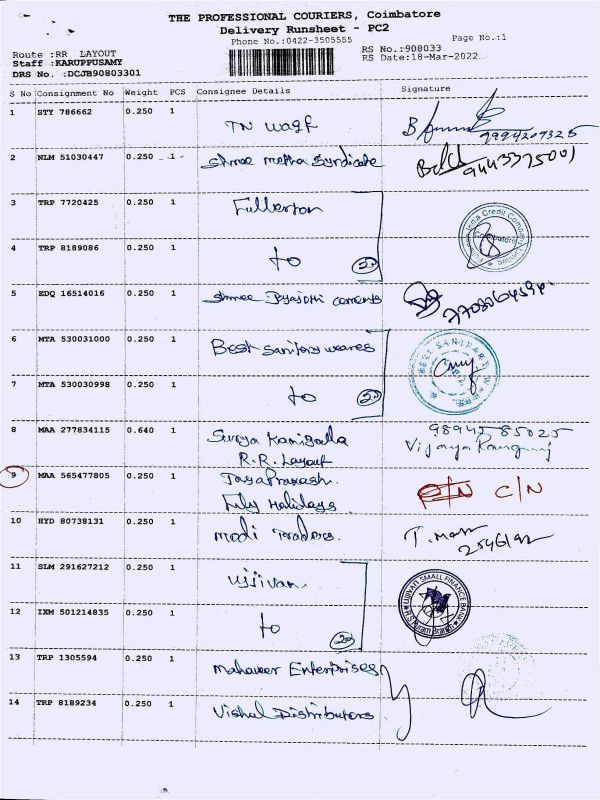 THE PROFESSIONAL COURIERS, Coimbatore
Delivery Runsheet - PC2
Phone No.:0422-3505555
Page No.:1
Route :RR LAYOUT
Staff :KARUPPUSAMY
DRS No. :DCJB90803301
RS No.:908033
RS Date:18-Mar-2022
S No Consignment No Weight PCS Consignee Details Signature
1 STY 786662 0.250 1
TN Waqf
9994209325
2 NLM 51030447 0.250 1 Shree metha Syndicate
9443375001
3 TRP 7720425 0.250 1 Fullerton
India Credit Company
Coimbatore
4 TRP 8189086 0.250 1 to
5 EDQ 16514016 0.250 1 Shree Jyajothi cements
6 MTA 530031000 0.250 1 Best sanitary weares
BEST SANITARY
7 MTA 530030998 0.250 1 to
8 MAA 277834115 0.640 1 Surya
R.R. Layout
98945 85025
Vijaya
9 MAA 565477805 0.250 1 Jayaprakash.
Holidays
C/N
10 HYD 80738131 0.250 1 Modi Traders.
T.
11 SLM 291627212 0.250 1 ujjivan
UJJIVAN SMALL FINANCE BANK
Branch
12 IXM 501214835 0.250 1 to
13 TRP 1305594 0.250 1 Mahaveer Enterprises
14 TRP 8189234 0.250 1 Vishal Distributors